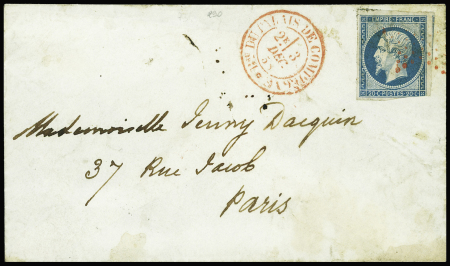 Bau DU PALAIS DE COMPIEGNE
2E
3
DEC
EMPIRE FRANC
20 C POSTES 20 C
Mademoiselle Jenny Dacquin
37 Rue Jacob
Paris